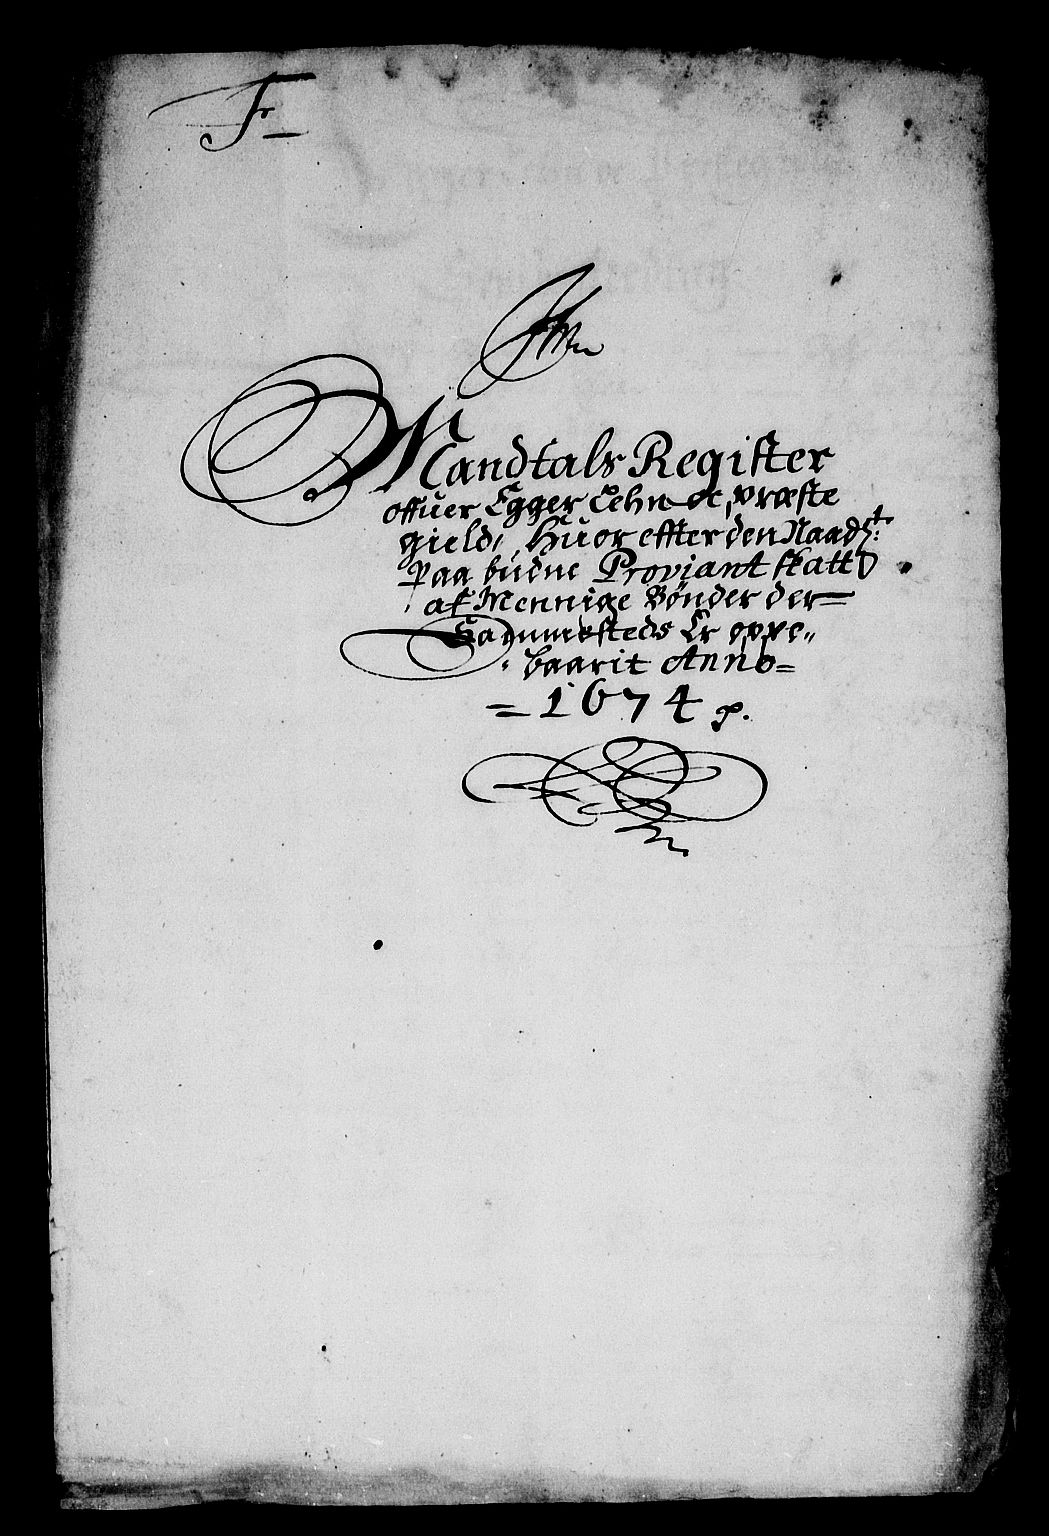 F
Mandtals Register
offuer Egger Lehn oc præste
gield, Huor effter den Naadst:
Paa budne Proviant skatt
af Mennige Bønder der
Sammesteds Er oppe„
baarit Anno=
=1674 p.